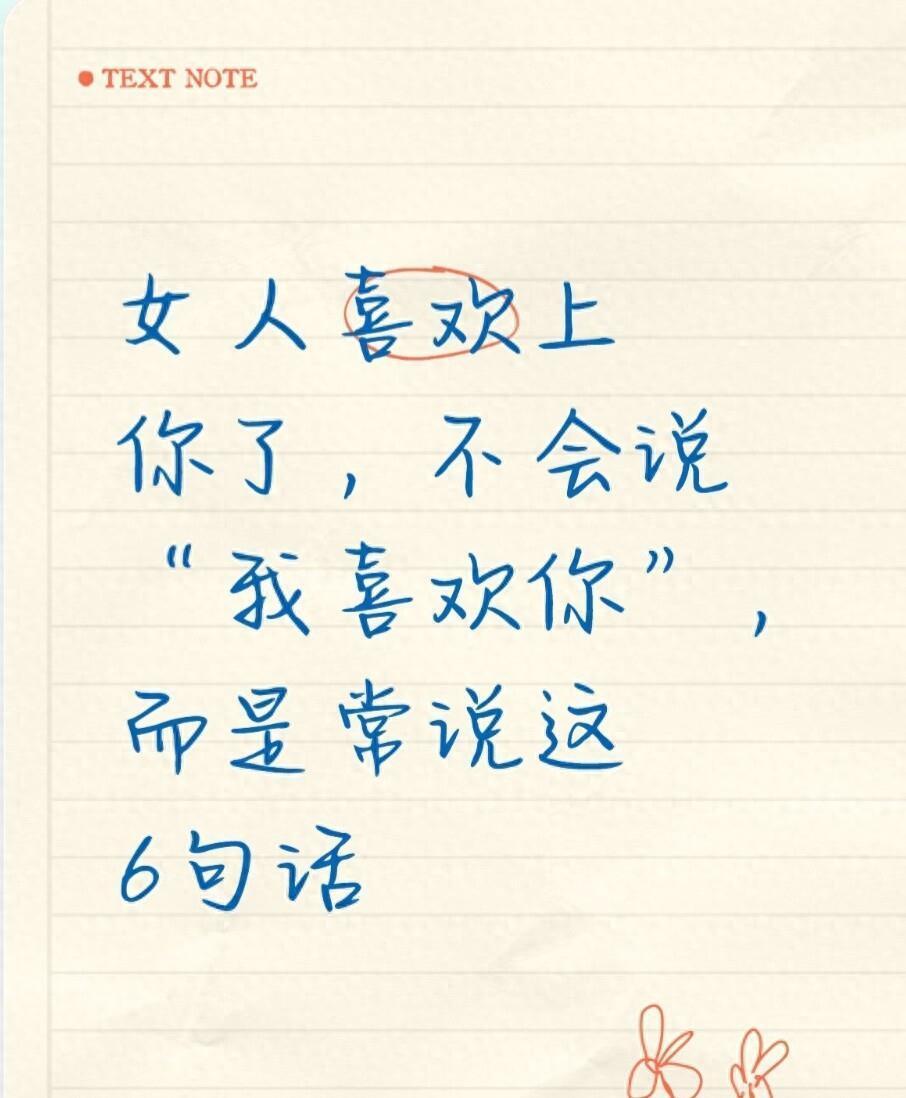 TEXT NOTE
女人喜欢上
你了，不会说
“我喜欢你”，
而是常说这
6句话